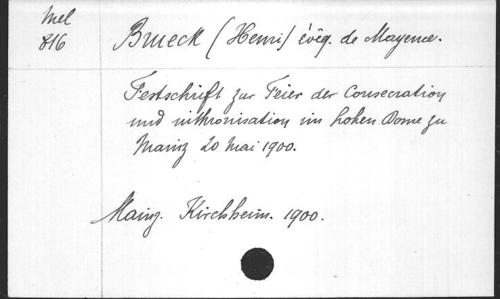 Mel
816
Brueck (Henri) évêq. de Mayence.
Festschrift zur Feier der Consecration
und inthronisation im hohen Dome zu
Mainz 20 mai 1900.
Mainz. Kirchheim. 1900.